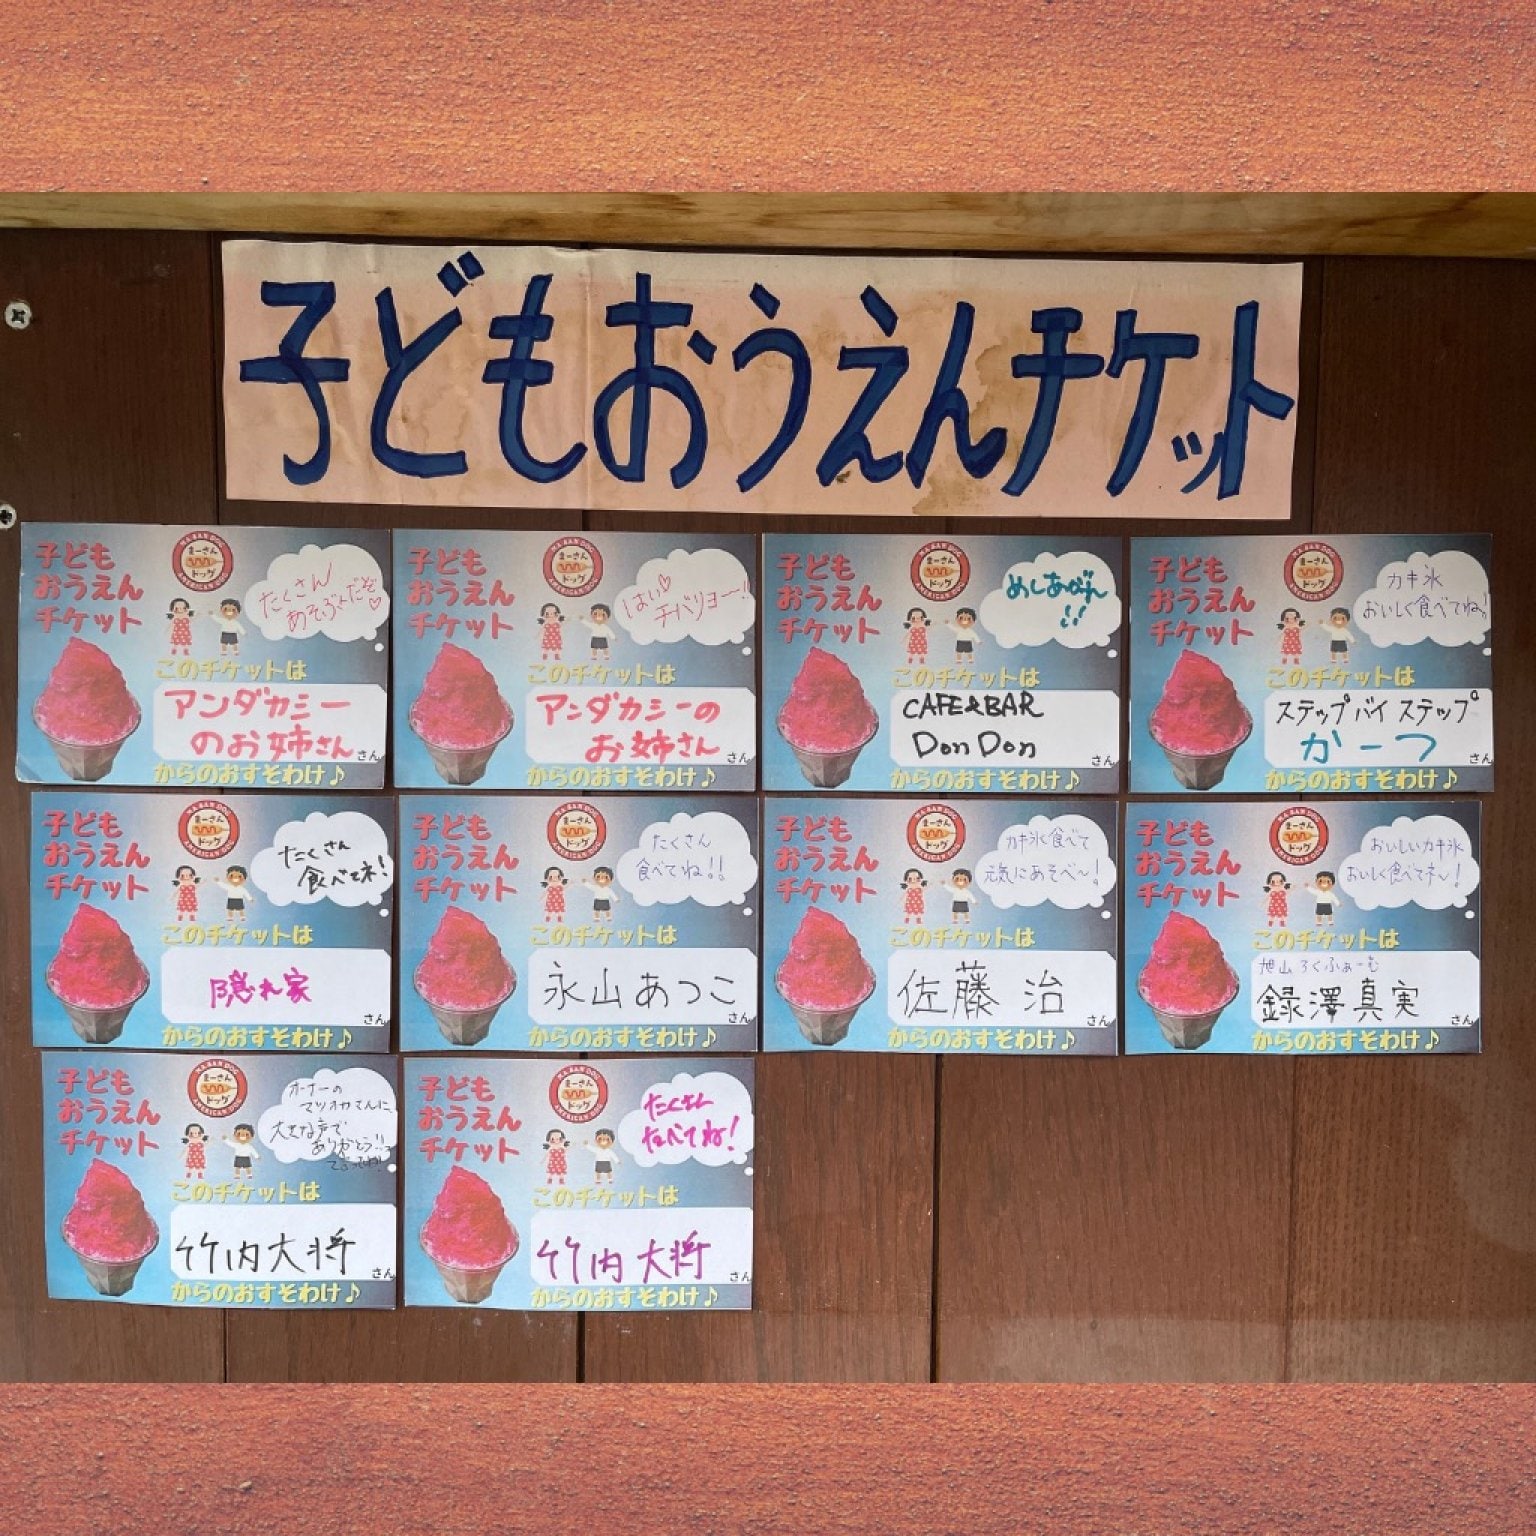 子どもおうえんチケット
子ども
おうえん
チケット
MA-SAN DOG
まーさん
ドッグ
AMERICAN DOG
たくさん
あそぶんだぞ♡
このチケットは
アンダカシー
のお姉さん
さん
からのおすそわけ♪
子ども
おうえん
チケット
MA-SAN DOG
まーさん
ドッグ
AMERICAN DOG
はい♡
チバリヨー!!
このチケットは
アンダカシーの
お姉さん
さん
からのおすそわけ♪
子ども
おうえん
チケット
MA-SAN DOG
まーさん
ドッグ
AMERICAN DOG
めしあがれ
!!
このチケットは
CAFE&BAR
Don Don
さん
からのおすそわけ♪
子ども
おうえん
チケット
MA-SAN DOG
まーさん
ドッグ
AMERICAN DOG
カキ氷
おいしく食べてね!
このチケットは
ステップバイステップ
かーつ
さん
からのおすそわけ♪
子ども
おうえん
チケット
MA-SAN DOG
まーさん
ドッグ
AMERICAN DOG
たくさん
食べてネ!
このチケットは
隠れ家
さん
からのおすそわけ♪
子ども
おうえん
チケット
MA-SAN DOG
まーさん
ドッグ
AMERICAN DOG
たくさん
食べてね!!
このチケットは
永山あつこ
さん
からのおすそわけ♪
子ども
おうえん
チケット
MA-SAN DOG
まーさん
ドッグ
AMERICAN DOG
カキ氷食べて
元気にあそべ〜!
このチケットは
佐藤 治
さん
からのおすそわけ♪
子ども
おうえん
チケット
MA-SAN DOG
まーさん
ドッグ
AMERICAN DOG
おいしいカキ氷
おいしく食べてネ〜!
このチケットは
旭山ろくふぁーむ
録澤真実
さん
からのおすそわけ♪
子ども
おうえん
チケット
MA-SAN DOG
まーさん
ドッグ
AMERICAN DOG
オーナーの
マツオカさんに
大きな声で
ありがとう!!っ
て言ってね!
このチケットは
竹内大将
さん
からのおすそわけ♪
子ども
おうえん
チケット
MA-SAN DOG
まーさん
ドッグ
AMERICAN DOG
たくさん
たべてね!
このチケットは
竹内大将
さん
からのおすそわけ♪